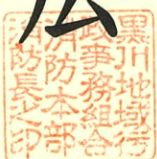 黒川地域行
政事務組合
消防本部
消防長之印